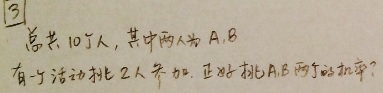 3
总共10个人,其中两人为A,B
有一个活动挑2人参加.正好挑A,B两个的机率?